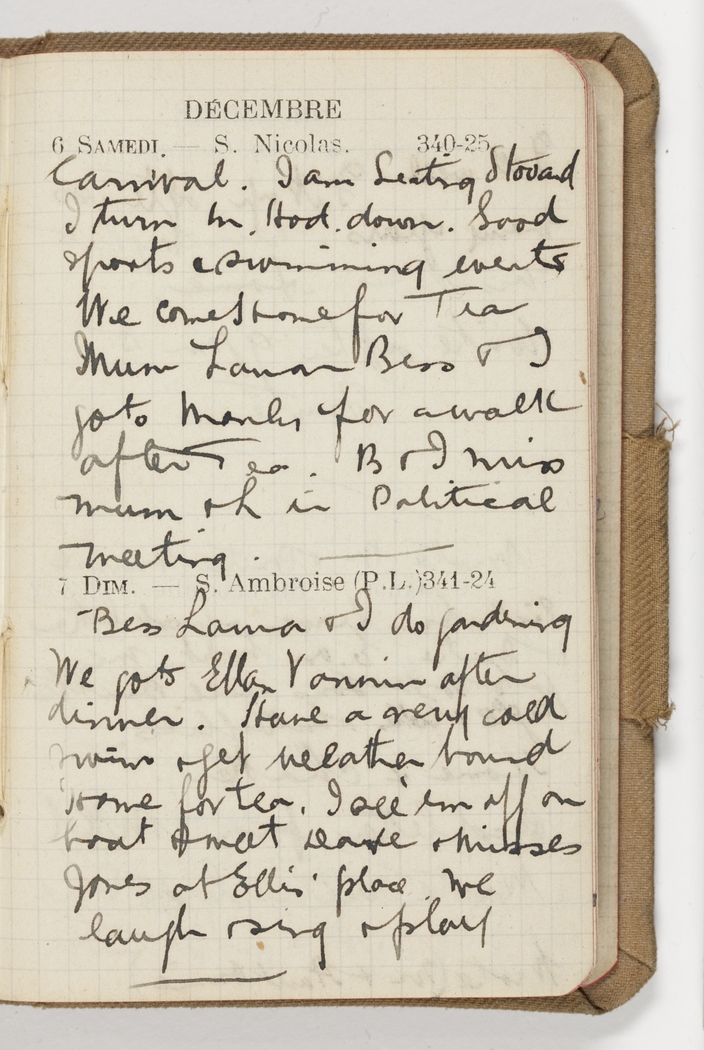 DÉCEMBRE
6 SAMEDI. — S. Nicolas. 340-25
Carnival. I am Seating Steward
I turn in. Hod. down. Good
sports & swimming events
We come home for Tea
Mum Launa Bess & I
go to Manly for a walk
after Tea. B & I miss
mum & L in Political
meeting.
7 DIM. — S. Ambroise (P.L.) 341-24
Bess Launa & I do gardening
We go to Ellan Vannin after
dinner. Have a very cold
swim & get weather bound
Home for tea. I see 'em off on
boat & meet & Misses
Jones at Ellis' place. We
laugh & sing & play